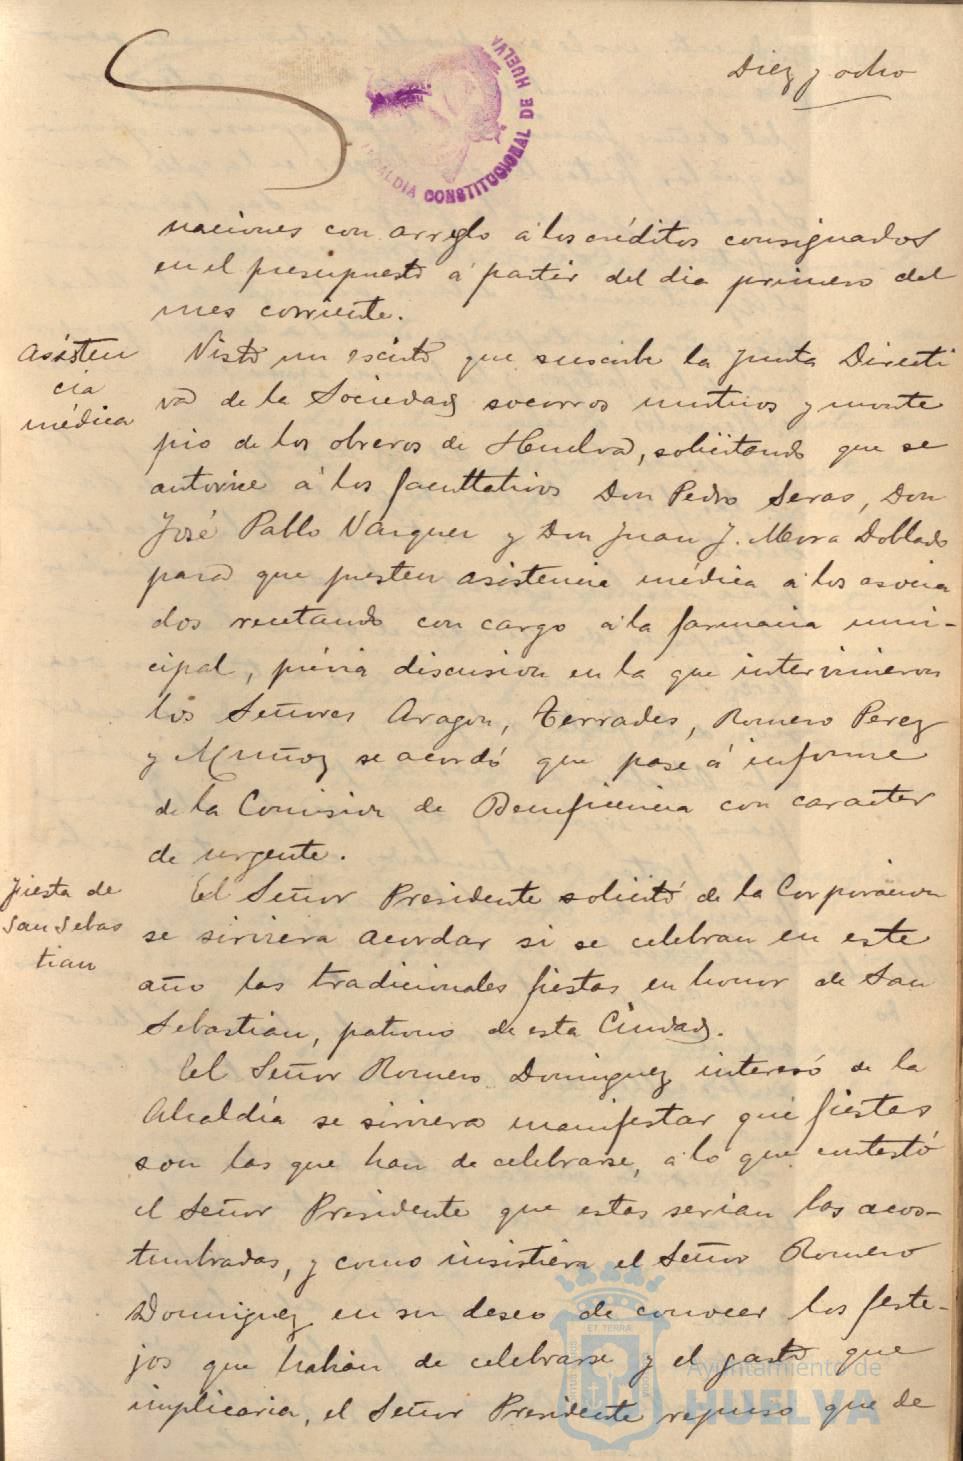 Diez y ocho
ALCALDIA CONSTITUCIONAL DE HUELVA
naciones con arreglo á los créditos consignados
en el presupuesto á partir del dia primero del
mes corriente.
Asisten
cia
médica
Visto un escrito que suscribe la Junta Directi
va de la Sociedad socorros mutuos y monte
pio de los obreros de Huelva, solicitando que se
autorice á los facultativos Don Pedro Seras, Don
José Pablo Vazquez y Don Juan J. Mora Doblado
para que presten asistencia médica á los asocia
dos recetando con cargo á la farmacia muni-
cipal, prévia discusion en la que intervinieron
los Señores Aragon, Terrades, Romero Perez
y Muñoz se acordó que pase á informe
de la Comision de Beneficencia con caracter
de urgente.
Fiesta de
San Sebas
tian
El Señor Presidente solicitó de la Corporacion
se sirviera acordar si se celebran en este
año las tradicionales fiestas en honor de San
Sebastian, patrono de esta Ciudad.
El Señor Romero Dominguez interesó de la
Alcaldía se sirviera manifestar qué fiestas
son las que han de celebrarse, a lo que contestó
el Señor Presidente que estas serian las acos-
tumbradas, y como insistiera el Señor Romero
Dominguez en su deseo de conocer los feste-
jos que habian de celebrarse y el gasto que
implicaria, el Señor Presidente repuso que de
Ayuntamiento de
HUELVA